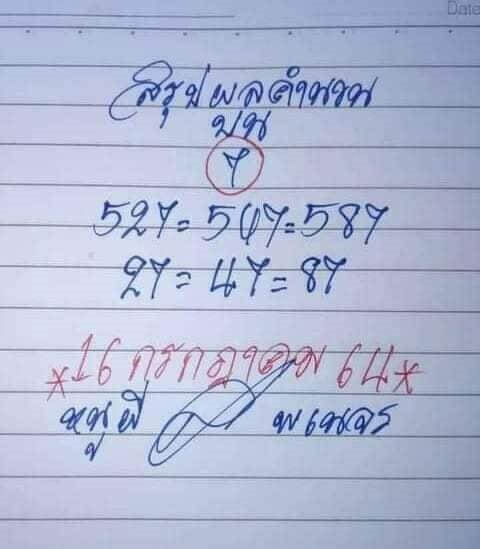 Date
สรุปผลคำนวน
บน
7
527 = 547 = 587
27 = 47 = 87
*16 กรกฎาคม 64*
หนูผี พเนจร